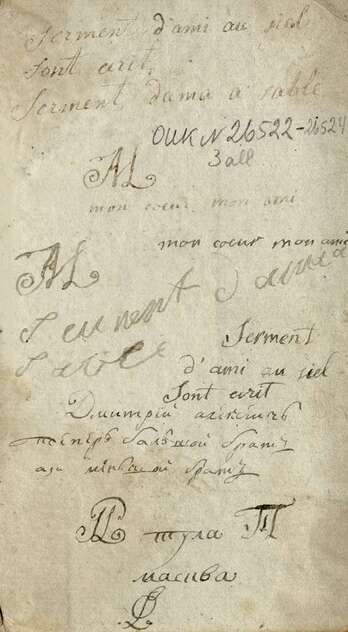 Serment d'ami au siel
sont ecrit
Serment dama a sable
ОИК N 26522-26524
3 all
M
mon coeur mon ami
mon coeur mon ami
M
Serment d'ama
sable
Serment
d'ami au siel
sont ecrit
Дмитрий
теперь балшой братъ
братъ
тула П
масква